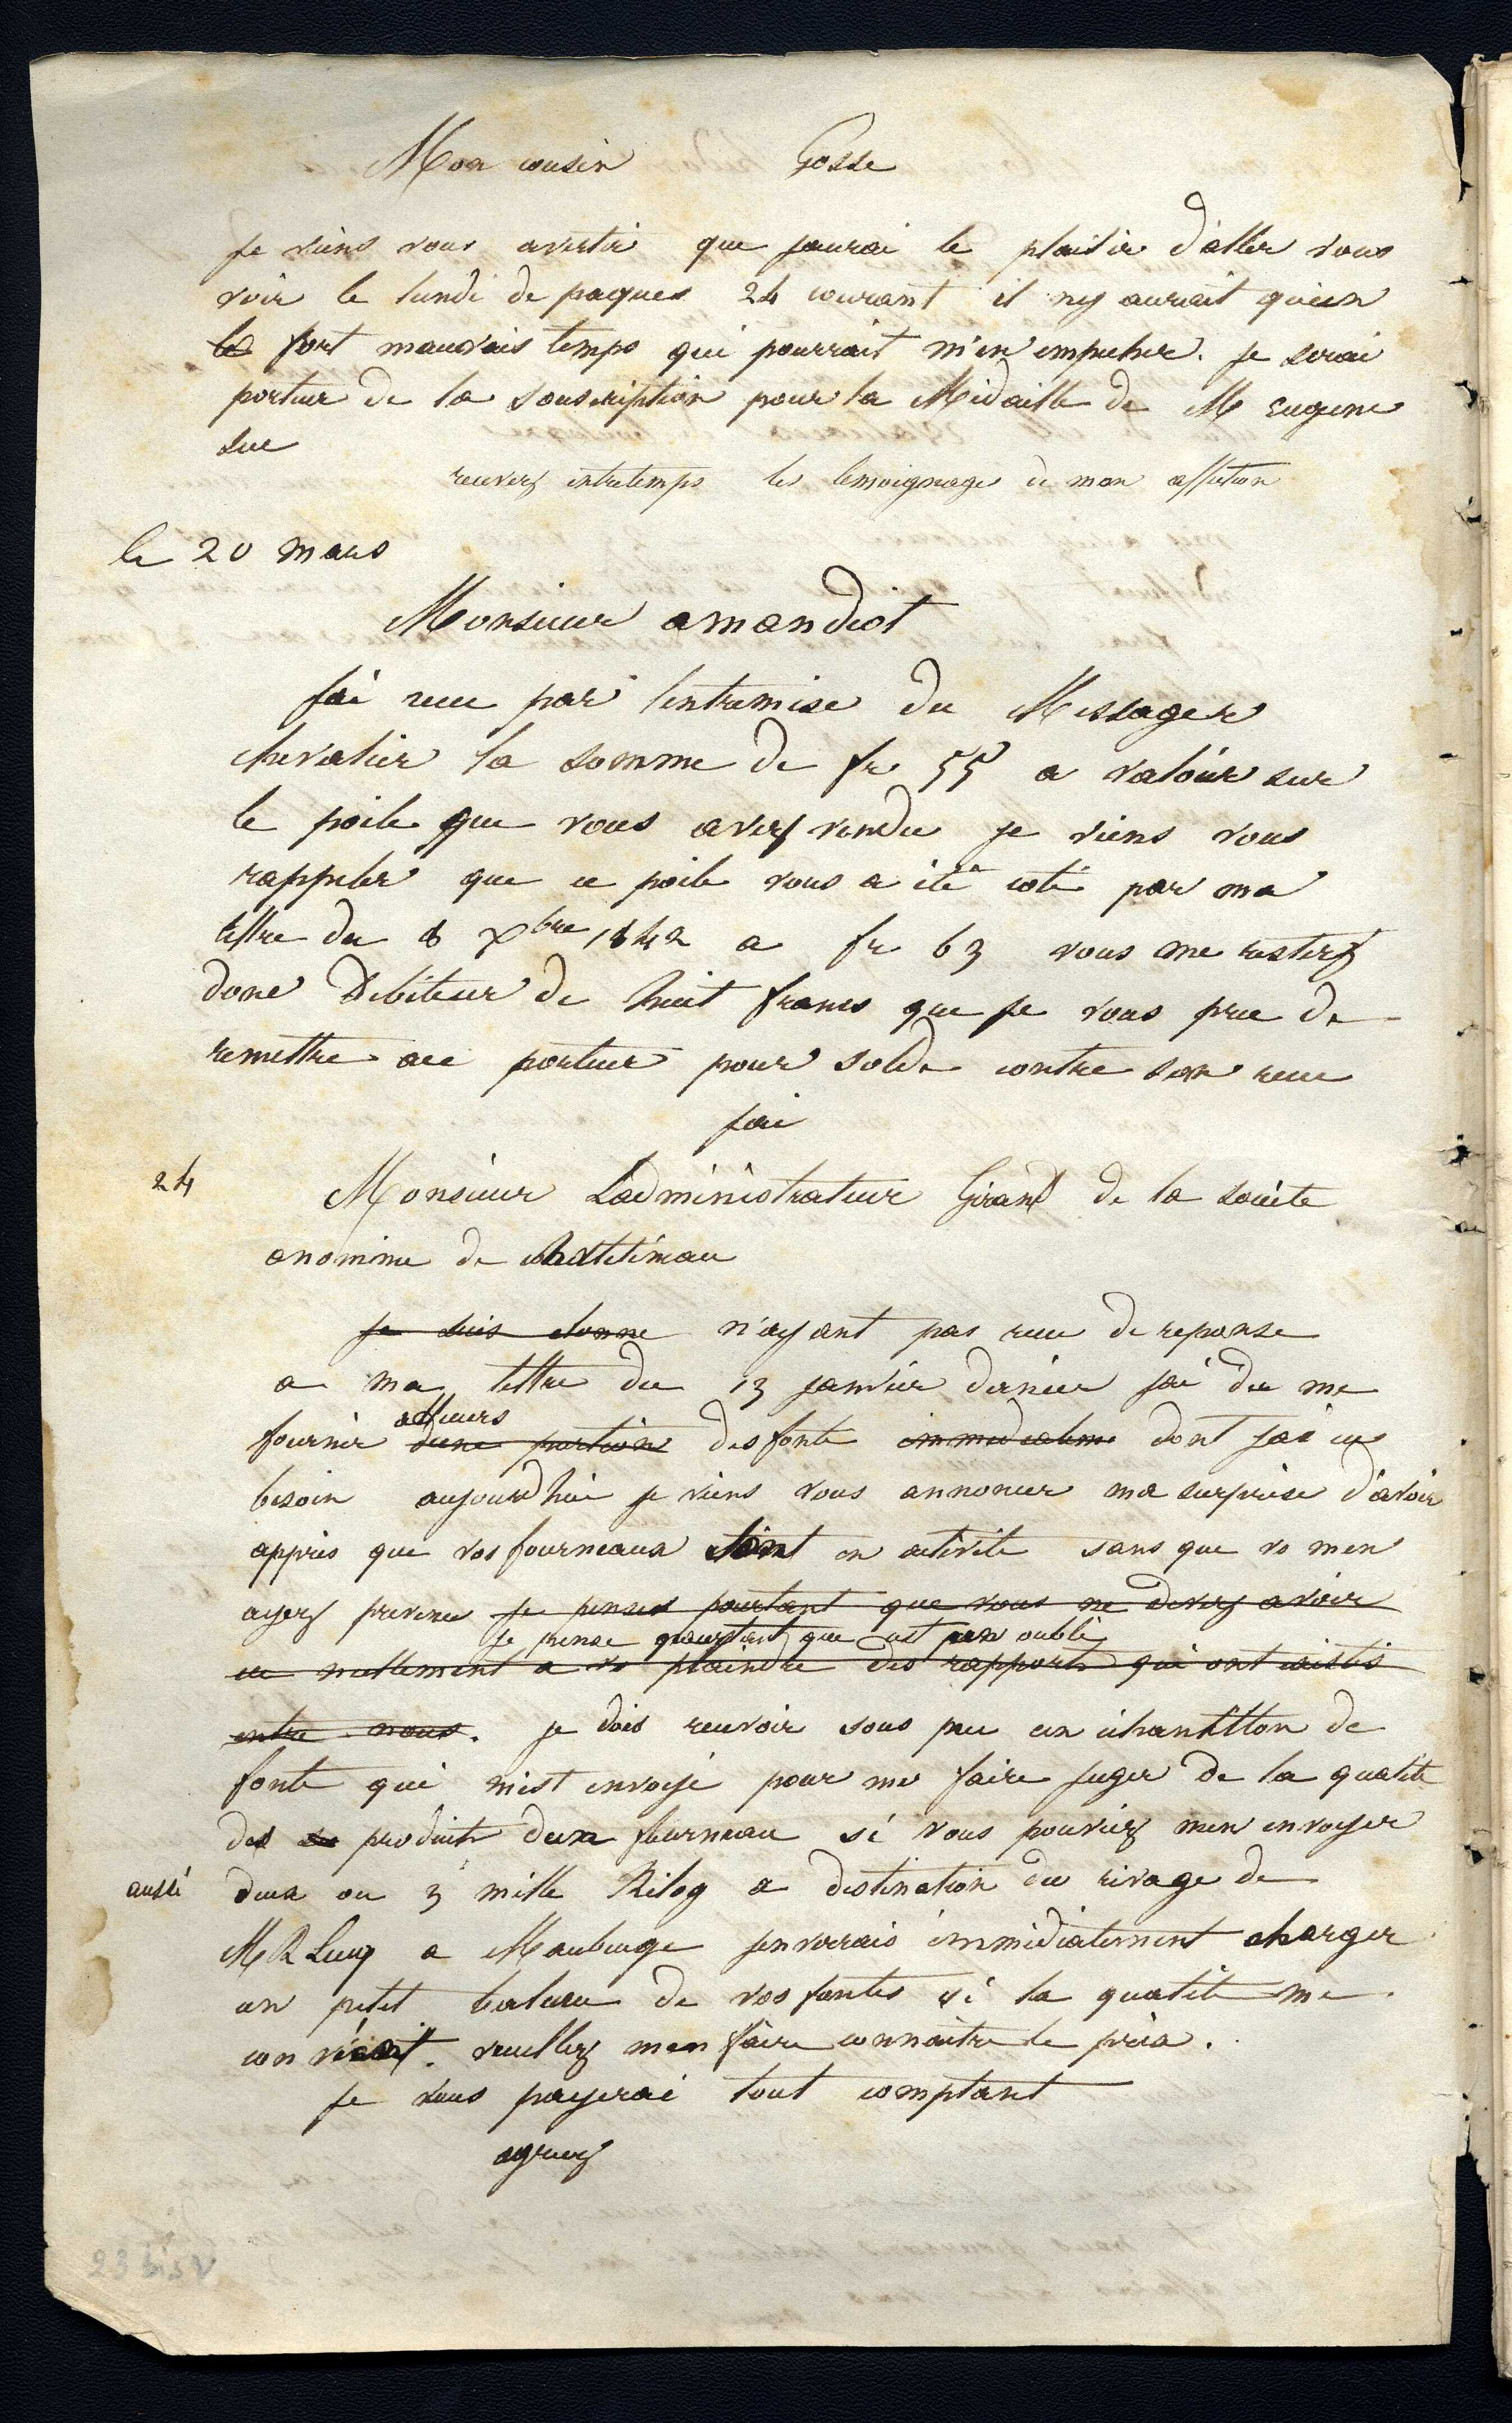 Mon cousin Gosse
je viens vous avertir que jaurai le plaisir d'aller vous
voir le lundi de paques 24 courant il ny aurait qu'un
le fort mauvais temps qui pourrait m'en empecher. je serai
porteur de la souscription pour la Médaille de M Eugene
Sue
recevez entretemps les temoignage de mon affection
le 20 mars
Monsieur amandiot
Jai recu par lentremise du Messager
chevalier la somme de fr 55 a valoir sur
le poile que vous avez vendu je viens vous
rappeler que ce poile vous a été coté par ma
lettre du 8 Xbre 1842 a fr 63 vous me resterz
donc Debiteur de huit francs que je vous prie de
remettre au porteur pour solde contre son recu
jai
24 Monsieur Ladministrateur Gérant de la société
anonime de chatelineau
je suis etonne n'ayant pas recu de reponse
a ma lettre du 13 janvier dernier jai du me
fournir ailleurs dune portion des fonte immediatem dont jai eu
besoin aujourdhui je viens vous annoncer ma surprise d'avoir
appris que vos fourneaux etoint en activité sans que vs men
ayez prevenu je pensais pourtant que vous ne devez avoir
je pense pourtant que cest un oubli
eu nullement a vs plaindre des rapports qui ont existés
entre nous. je dois recevoir sous peu un échantillon de
fonte qui m'est envoyé pour me faire juger de la qualité
des produits dun fourneau si vous pouviez men envoyer
aussi deux ou 3 mille Kilog a destination du rivage de
M R Lecuy a Maubeuge jenverrais immédiatement charger
un petit bateau de vos fontes si la qualité me
convient. veuillez men faire connaitre le prix.
je vous payerai tout comptant
agreez
23 bis v